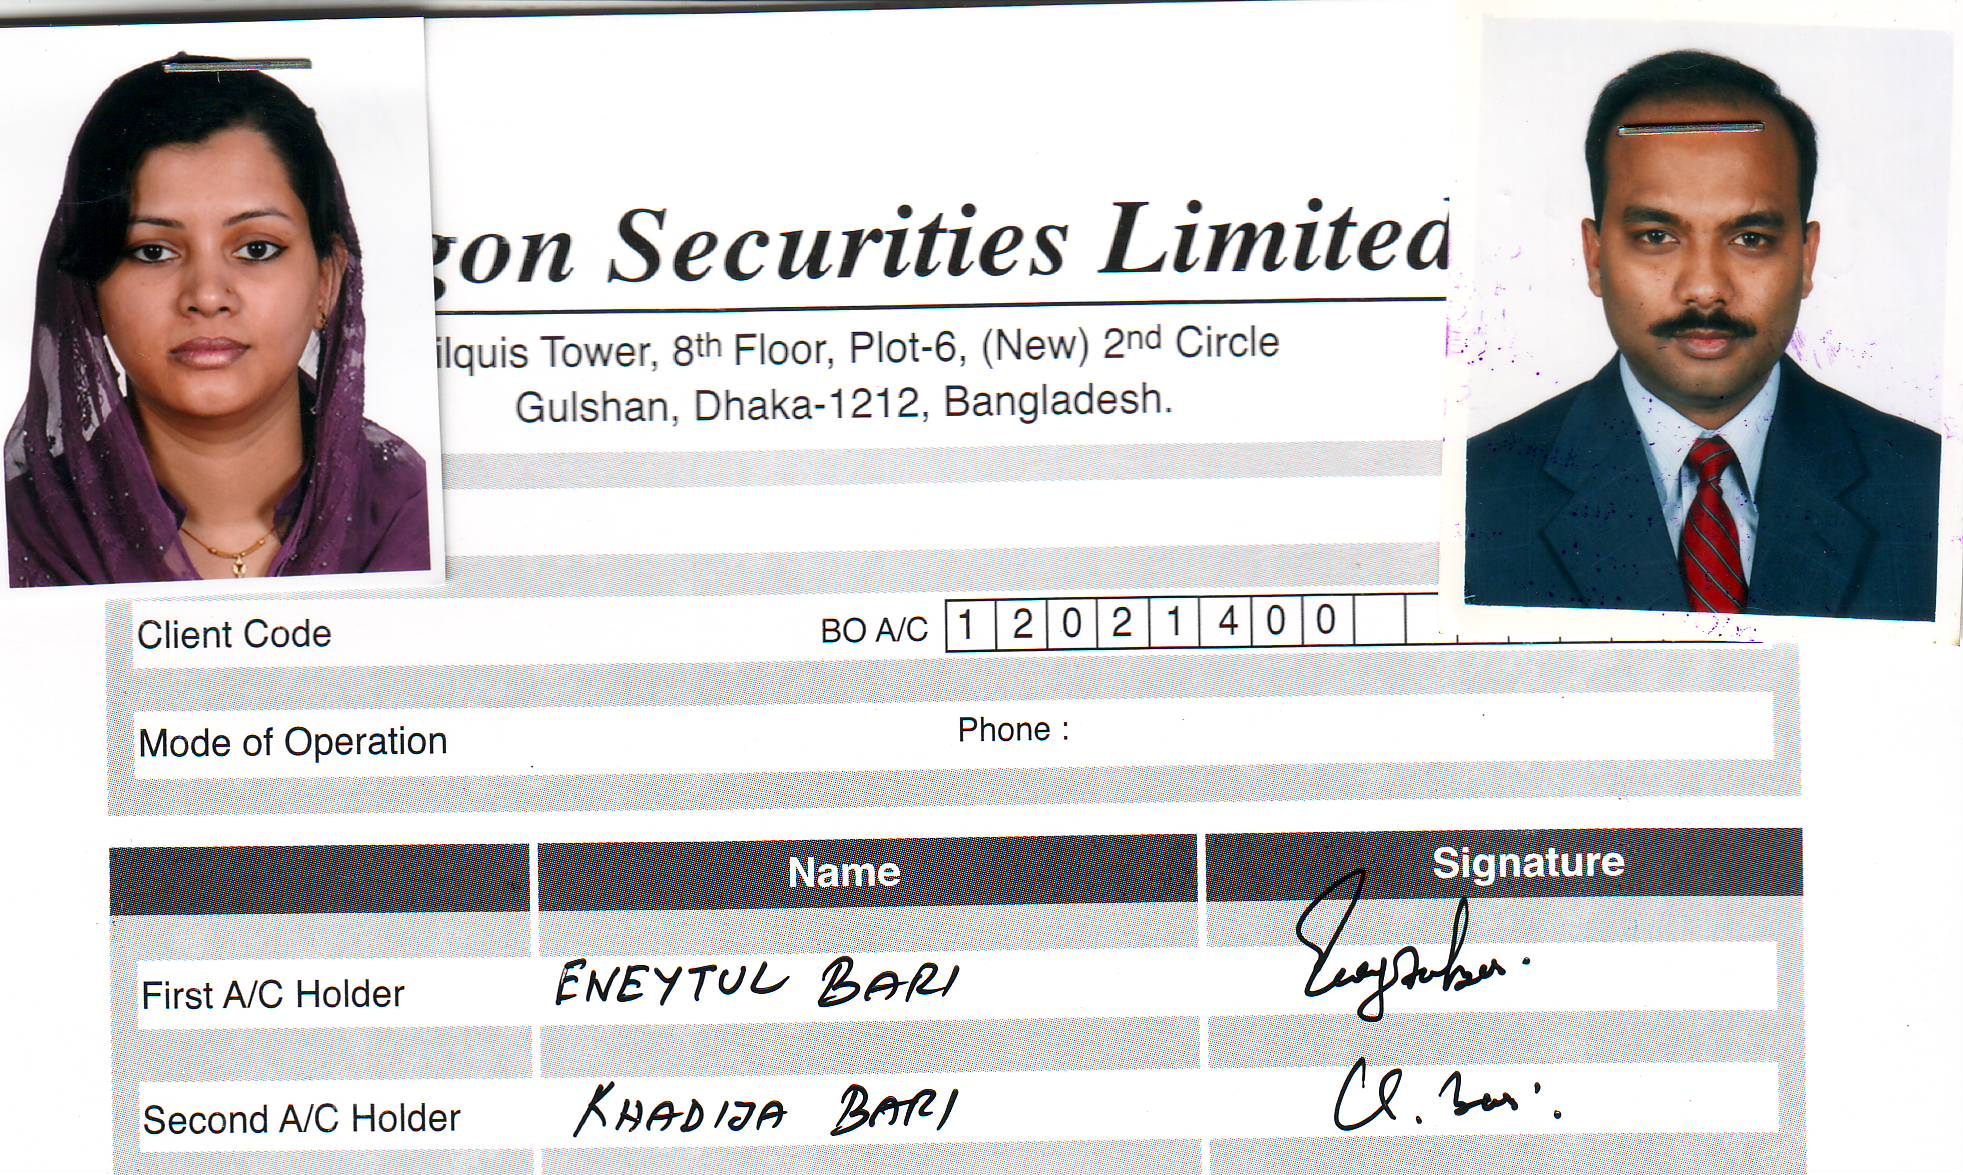 Securities Limited
Tower, 8th Floor, Plot-6, (New) 2nd Circle
Gulshan, Dhaka-1212, Bangladesh.
Client Code BO A/C 1 2 0 2 1 4 0 0
Mode of Operation Phone :
Name Signature
First A/C Holder ENEYTUL BARI
Second A/C Holder KHADIJA BARI